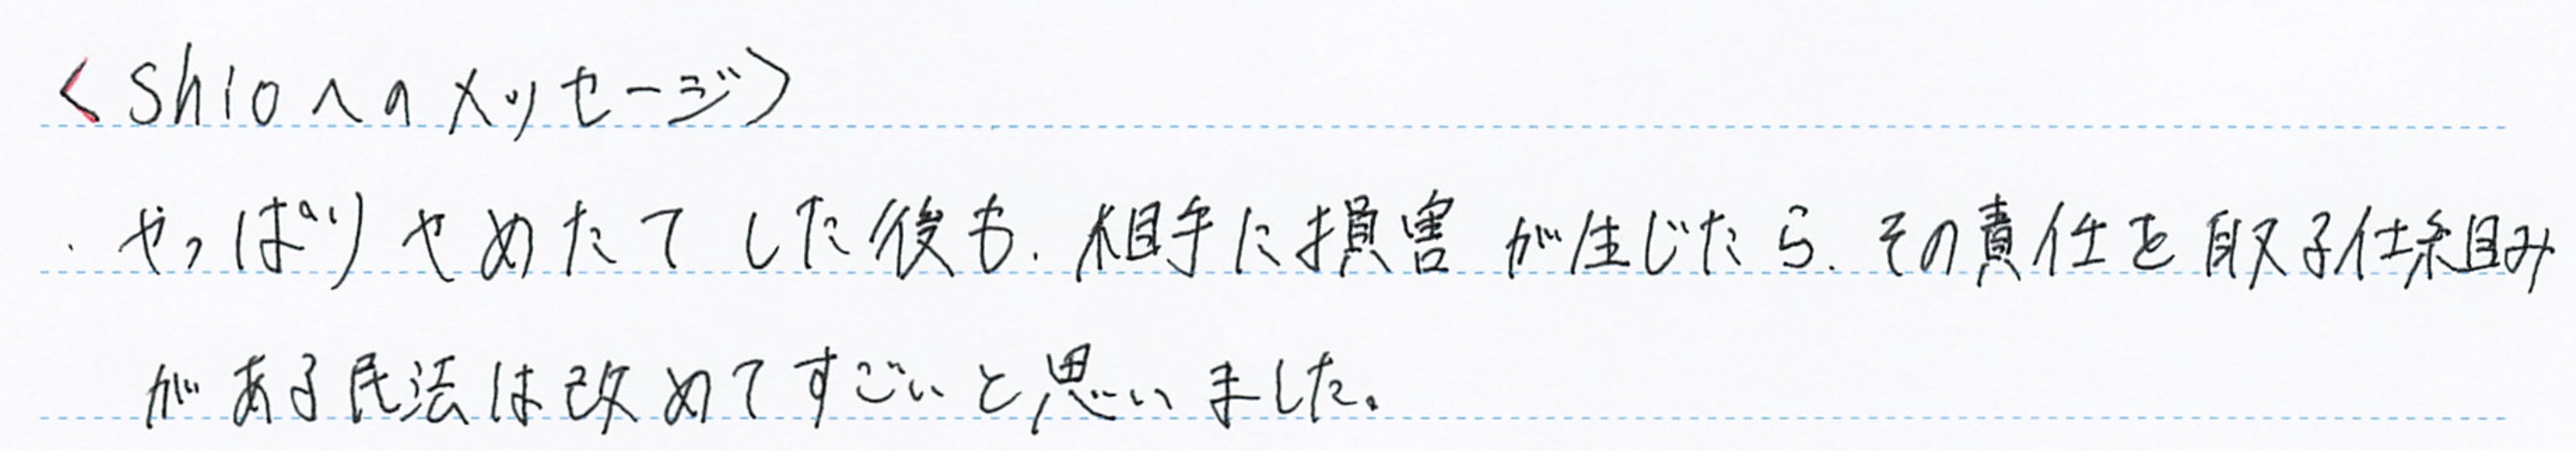 <shioへのメッセージ>
・やっぱりやめたてした後も、相手に損害が生じたら、その責任を取る仕組み
がある民法は改めてすごいと思いました。